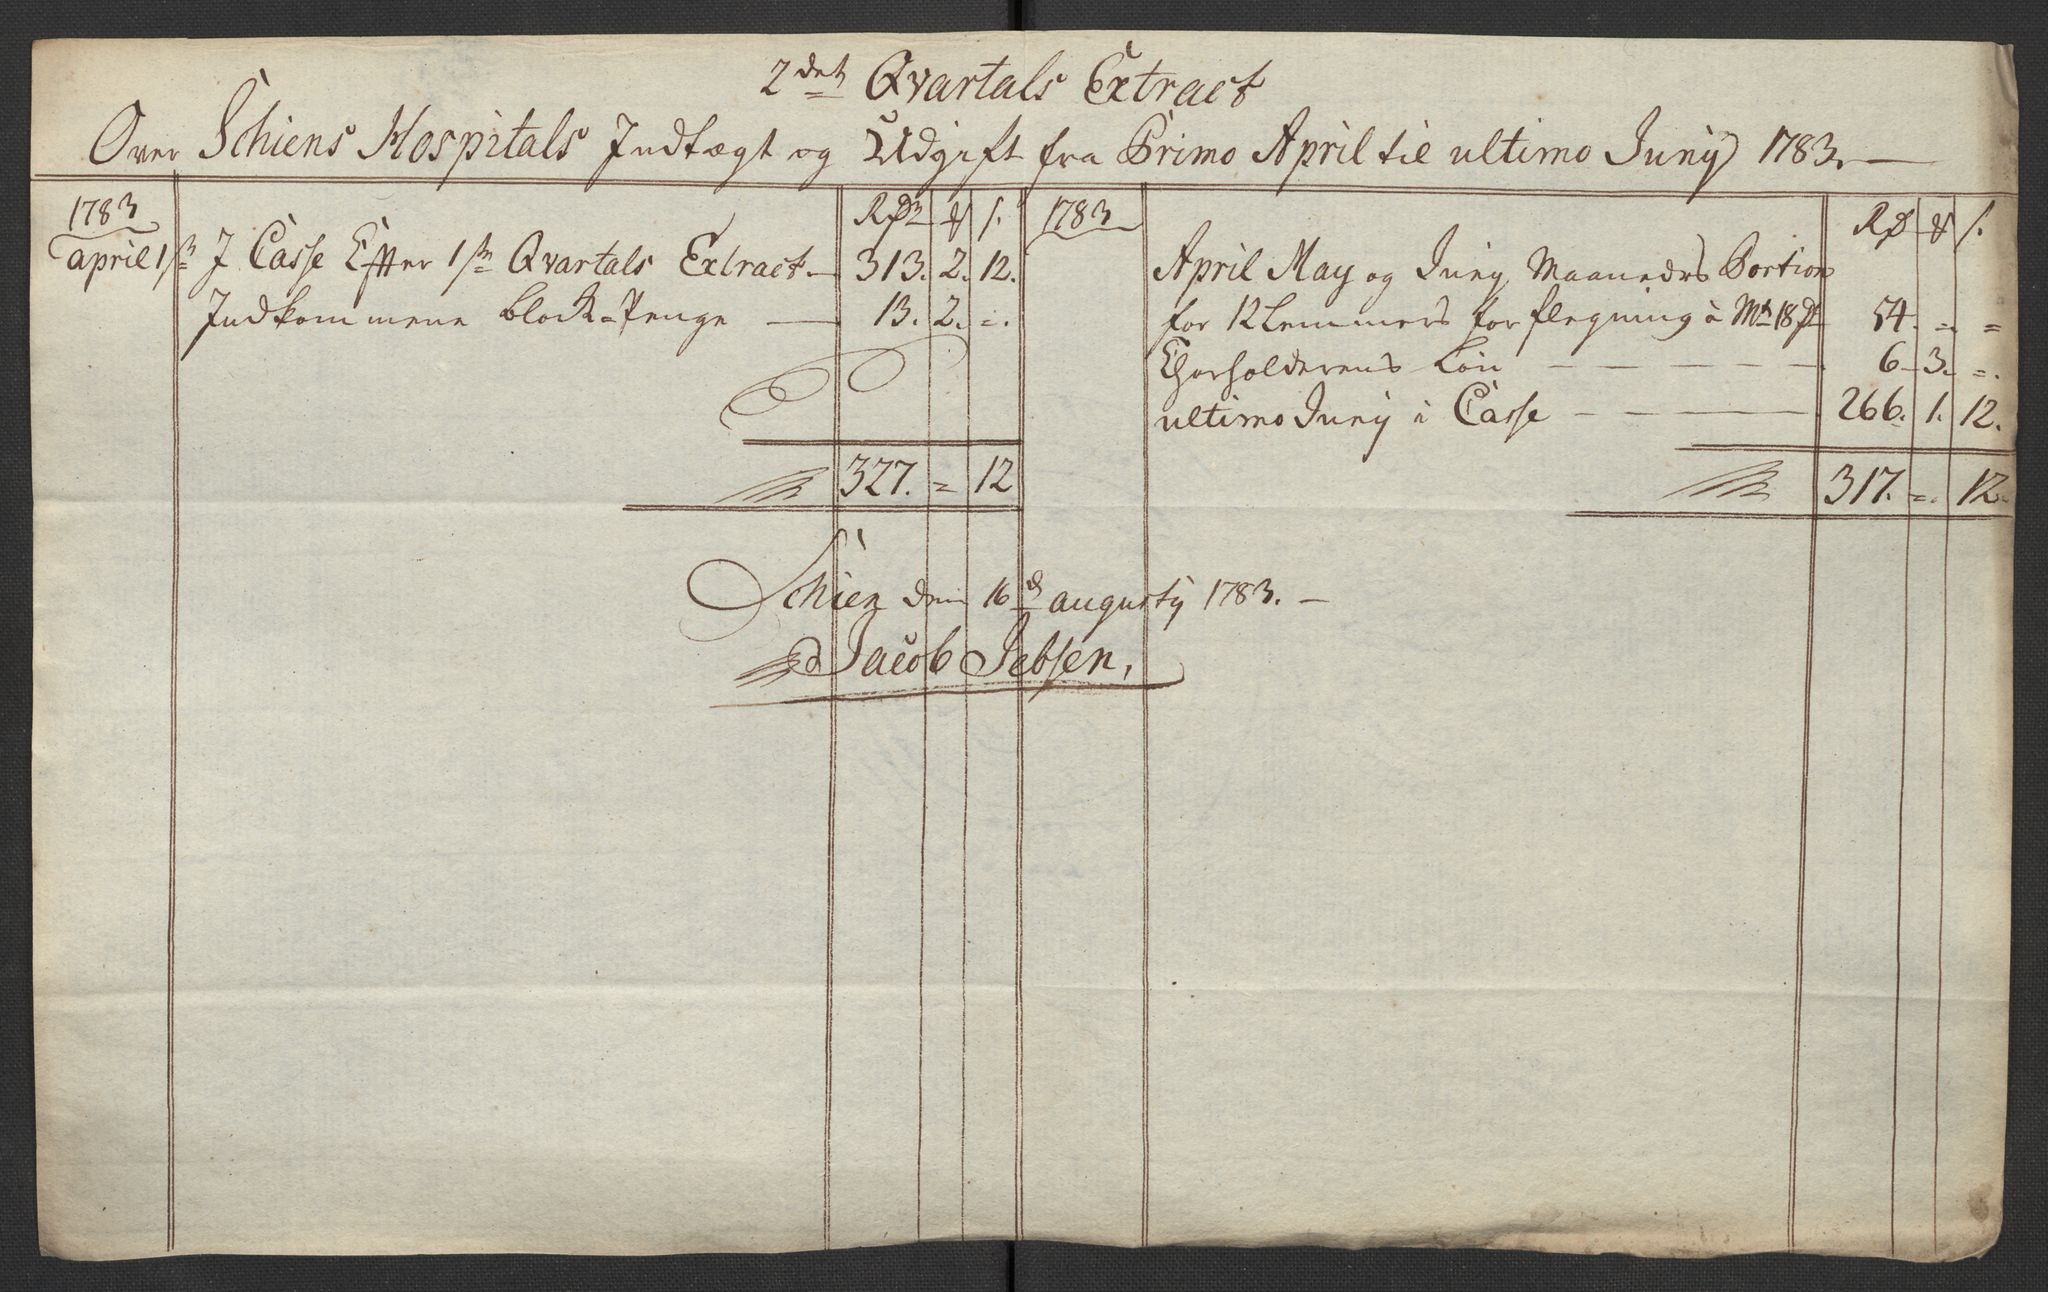 2det Qvartals Extract
Over Schiens Hospitals Indtægt og Udgift fra Primo April til ultimo Juny 1783.
1783
Rdr ß.
april 1ste I Casse Efter 1ste Qvartals Extract 313. 2. 12.
Indkommene block-Penge 13. 2. =.
327. = 12
1783
Rd ß.
April May og Juny Maaneders Portion
for 12 Lemmers forflegning à Md 18 54. = =
Chorholderens Løn 6 3. =.
ultimo Juny i Casse 266. 1. 12.
317. =. 12
Schien den 16d augusty 1783.
Jacob Jebsen,